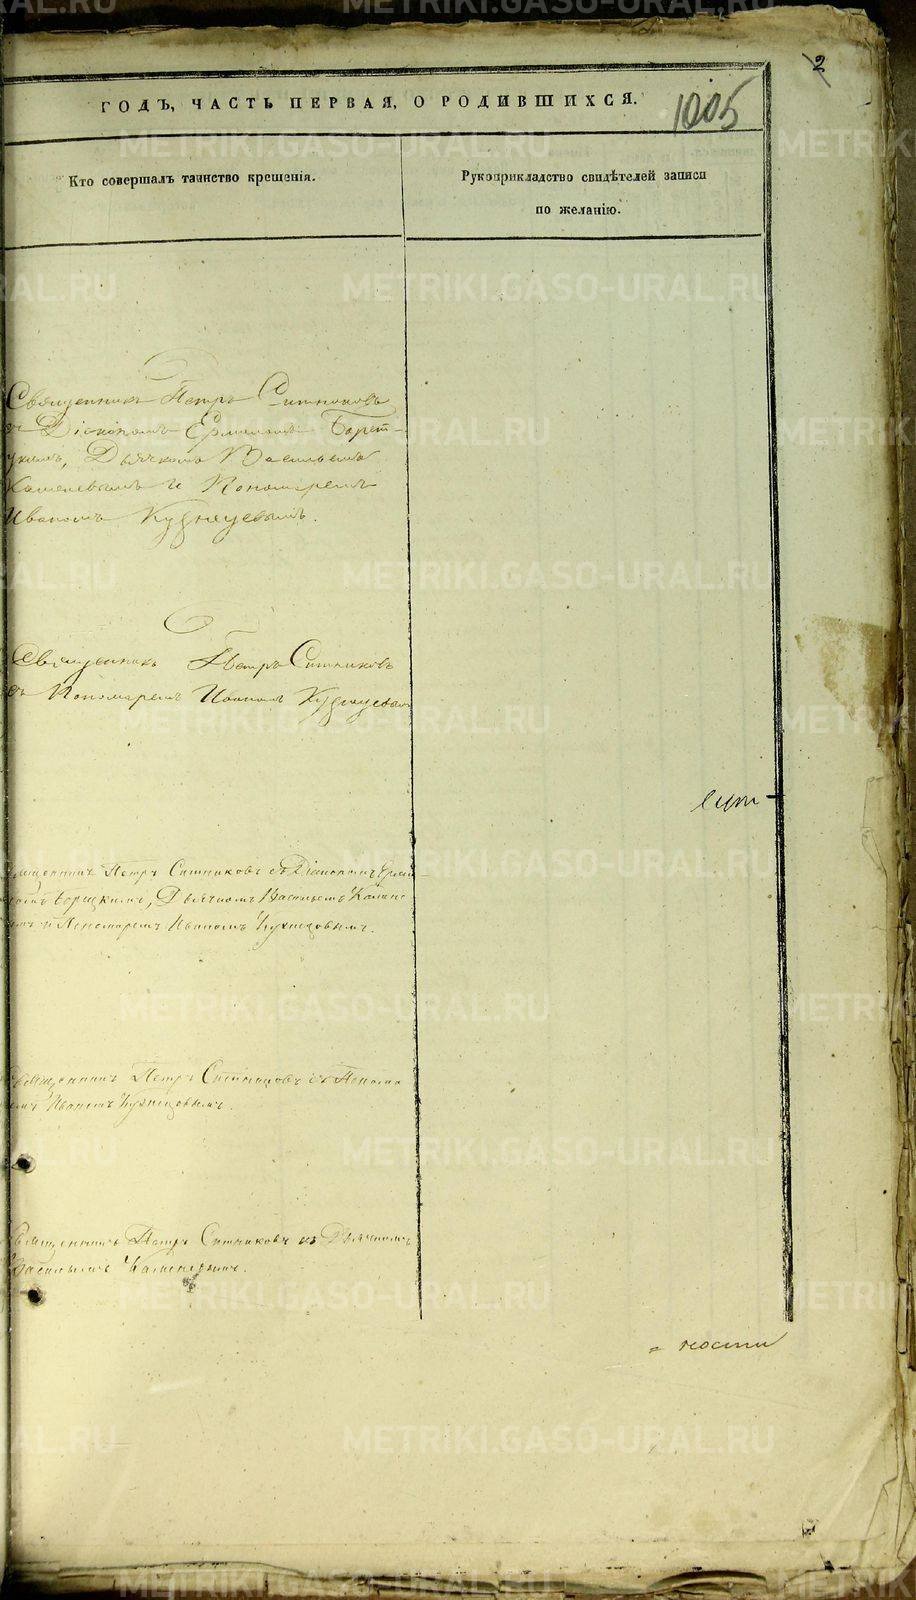 2
ГОДЪ, ЧАСТЬ ПЕРВАЯ, О РОДИВШИХСЯ.
1005
Кто совершалъ таинство крещенія.
Рукоприкладство свидѣтелей записи
по желанію.
Священникъ Петръ Ситниковъ
съ Діакономъ Ермиломъ Борет-
Дьячкомъ Васильемъ
и Пономаремъ
Иваномъ Кузнецовымъ.
Священникъ Петръ Ситниковъ
съ Пономаремъ Иваномъ Кузнецовым
Священникъ Петръ Ситниковъ съ Діакономъ Ерми
Дьячкомъ Васильемъ
и Пономаремъ Иваномъ Кузнецовымъ.
Священникъ Петръ Ситниковъ съ Понома
Иваномъ Кузнецовымъ.
Священникъ Петръ Ситниковъ съ Дьячкомъ
Васильемъ
= ности
METRIKI.GASO-URAL.RU